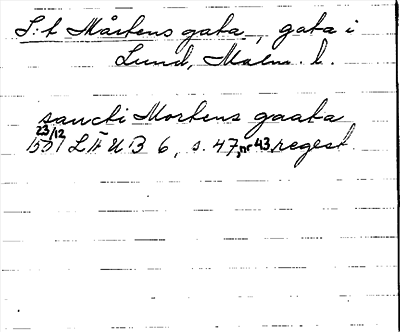 S:t Mårtens gata, gata i
Lund, Malm. l.
sancti Mortens gaata
23/12
1501 LÄUB 6, s. 47, nr 43, regest.